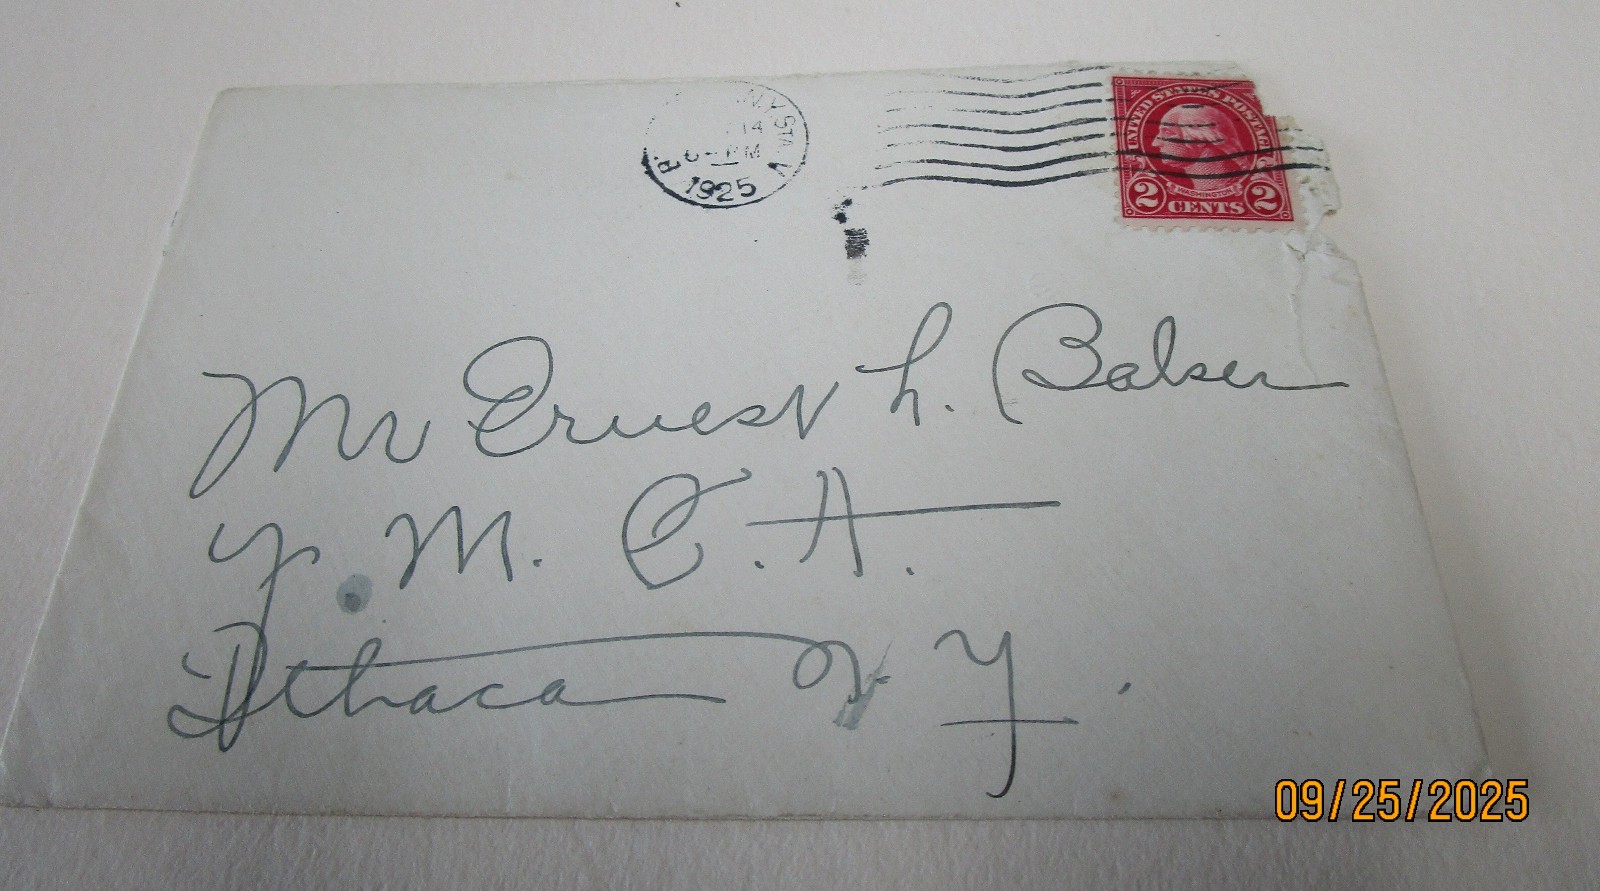 N.Y. STA. V
14
PM
1925
UNITED STATES POSTAGE
WASHINGTON
2 CENTS 2
Mr Ernest L. Balser
Y. M. C. A.
Ithaca N. Y.
09/25/2025